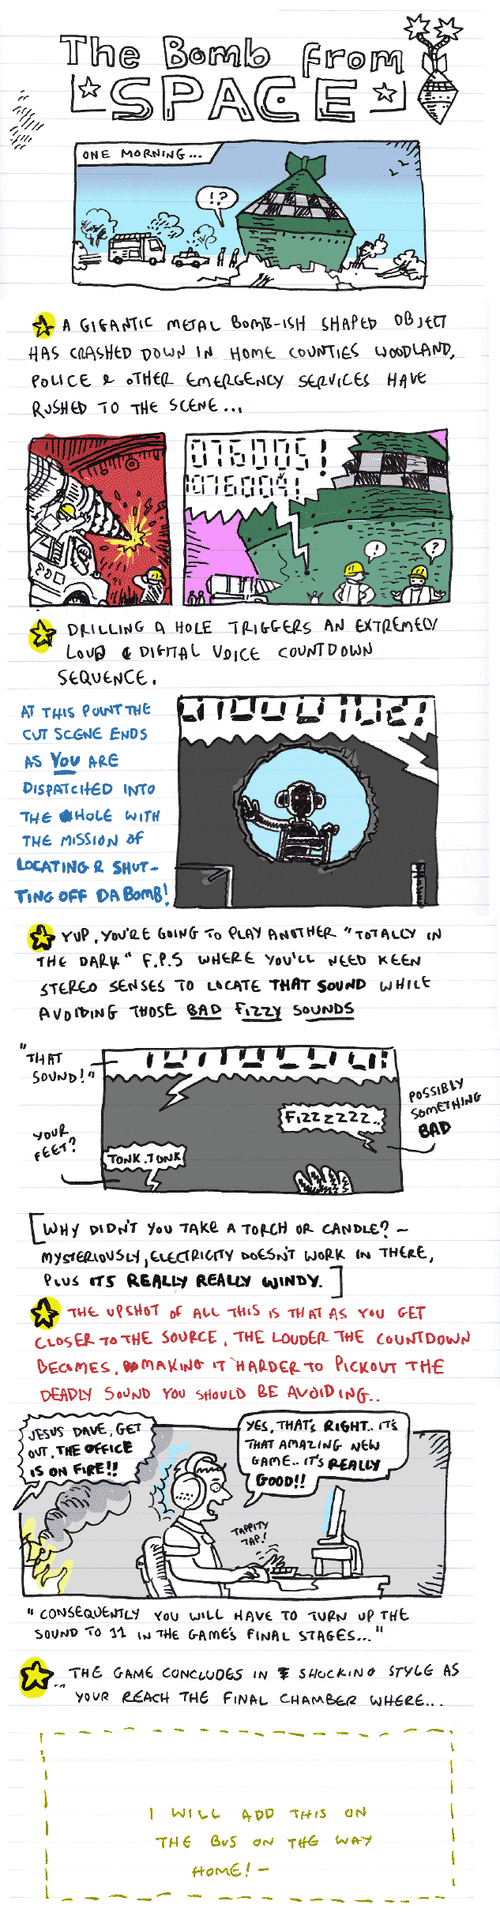 The Bomb from
SPACE
ONE MORNING...
!?
A GIGANTIC METAL BOMB-ISH SHAPED OBJECT
HAS CRASHED DOWN IN HOME COUNTIES WOODLAND,
POLICE & OTHER EMERGENCY SERVICES HAVE
RUSHED TO THE SCENE...
076005!
076004!
!
?
DRILLING A HOLE TRIGGERS AN EXTREMELY
LOUD & DIGITAL VOICE COUNTDOWN
SEQUENCE.
AT THIS POINT THE
CUT SCENE ENDS
AS YOU ARE
DISPATCHED INTO
THE HOLE WITH
THE MISSION OF
LOCATING & SHUT-
TING OFF DA BOMB!
YUP, YOU'RE GOING TO PLAY ANOTHER "TOTALLY IN
THE DARK" F.P.S WHERE YOU'LL NEED KEEN
STEREO SENSES TO LOCATE THAT SOUND WHILE
AVOIDING THOSE BAD FIZZY SOUNDS
"THAT
SOUND!"
POSSIBLY
SOMETHING
BAD
FIZZZZZZ..
YOUR
FEET?
TONK.TONK
[WHY DIDN'T YOU TAKE A TORCH OR CANDLE? -
MYSTERIOUSLY, ELECTRICITY DOESN'T WORK IN THERE,
PLUS ITS REALLY REALLY WINDY.]
THE UPSHOT OF ALL THIS IS THAT AS YOU GET
CLOSER TO THE SOURCE, THE LOUDER THE COUNTDOWN
BECOMES, MAKING IT HARDER TO PICKOUT THE
DEADLY SOUND YOU SHOULD BE AVOIDING..
JESUS DAVE, GET
OUT, THE OFFICE
IS ON FIRE!!
YES, THAT'S RIGHT.. IT'S
THAT AMAZING NEW
GAME.. IT'S REALLY
GOOD!!
TAPPITY
TAP!
"CONSEQUENTLY YOU WILL HAVE TO TURN UP THE
SOUND TO 11 IN THE GAME'S FINAL STAGES..."
THE GAME CONCLUDES IN SHOCKING STYLE AS
YOUR REACH THE FINAL CHAMBER WHERE...
I WILL ADD THIS ON
THE BUS ON THE WAY
HOME! -